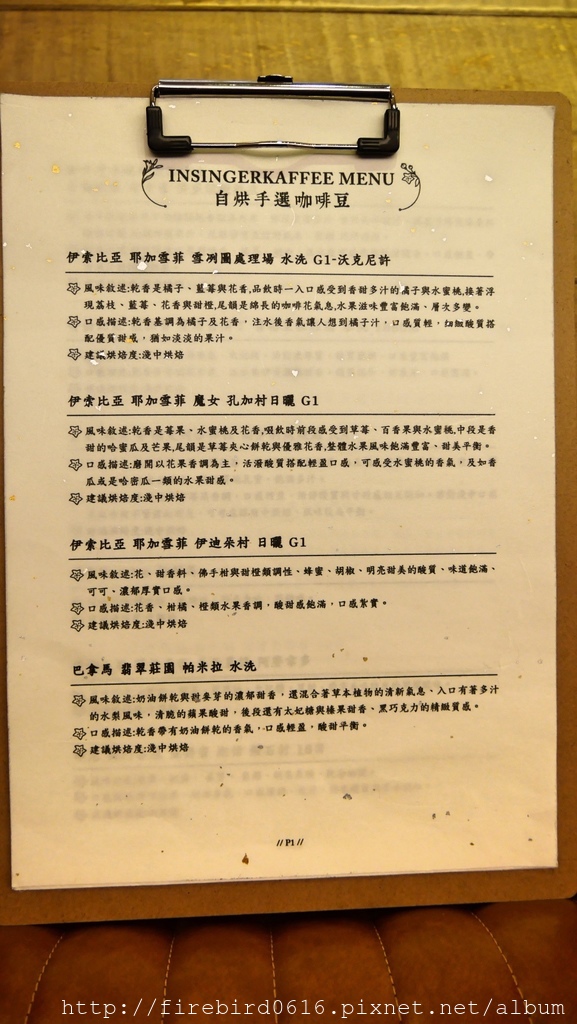 INSINGERKAFFEE MENU
自烘手選咖啡豆
伊索比亞 耶加雪菲 雪冽圖處理場 水洗 G1-沃克尼許
風味敘述:乾香是橘子、藍莓與花香,品飲時一入口感受到香甜多汁的橘子與水蜜桃,接著浮
現荔枝、藍莓、花香與甜橙,尾韻是綿長的咖啡花氣息,水果滋味豐富飽滿、層次多變。
口感描述:乾香基調為橘子及花香，注水後香氣讓人想到橘子汁，口感質輕，細緻酸質搭
配優質甜感，猶如淡淡的果汁。
建議烘焙度:淺中烘焙
伊索比亞 耶加雪菲 魔女 孔加村日曬 G1
風味敘述:乾香是莓果、水蜜桃及花香,啜飲時前段感受到草莓、百香果與水蜜桃,中段是香
甜的哈蜜瓜及芒果,尾韻是草莓夾心餅乾與優雅花香,整體水果風味飽滿豐富、甜美平衡。
口感描述:磨開以花果香調為主，活潑酸質搭配輕盈口感，可感受水蜜桃的香氣，及如香
瓜或是哈密瓜一類的水果甜感。
建議烘焙度:淺中烘焙
伊索比亞 耶加雪菲 伊迪朵村 日曬 G1
風味敘述:花、甜香料、佛手柑與甜橙類調性、蜂蜜、胡椒、明亮甜美的酸質、味道飽滿、
可可、濃郁厚實口感。
口感描述:花香、柑橘、橙類水果香調，酸甜感飽滿，口感紮實。
建議烘焙度:淺中烘焙
巴拿馬 翡翠莊園 帕米拉 水洗
風味敘述:奶油餅乾與甜麥芽的濃郁甜香，還混合著草本植物的清新氣息、入口有著多汁
的水梨風味，清脆的蘋果酸甜，後段還有太妃糖與榛果甜香、黑巧克力的精緻質感。
口感描述:乾香帶有奶油餅乾的香氣，口感輕盈，酸甜平衡。
建議烘焙度:淺中烘焙
// P1 //
http://firebird0616.pixnet.net/album